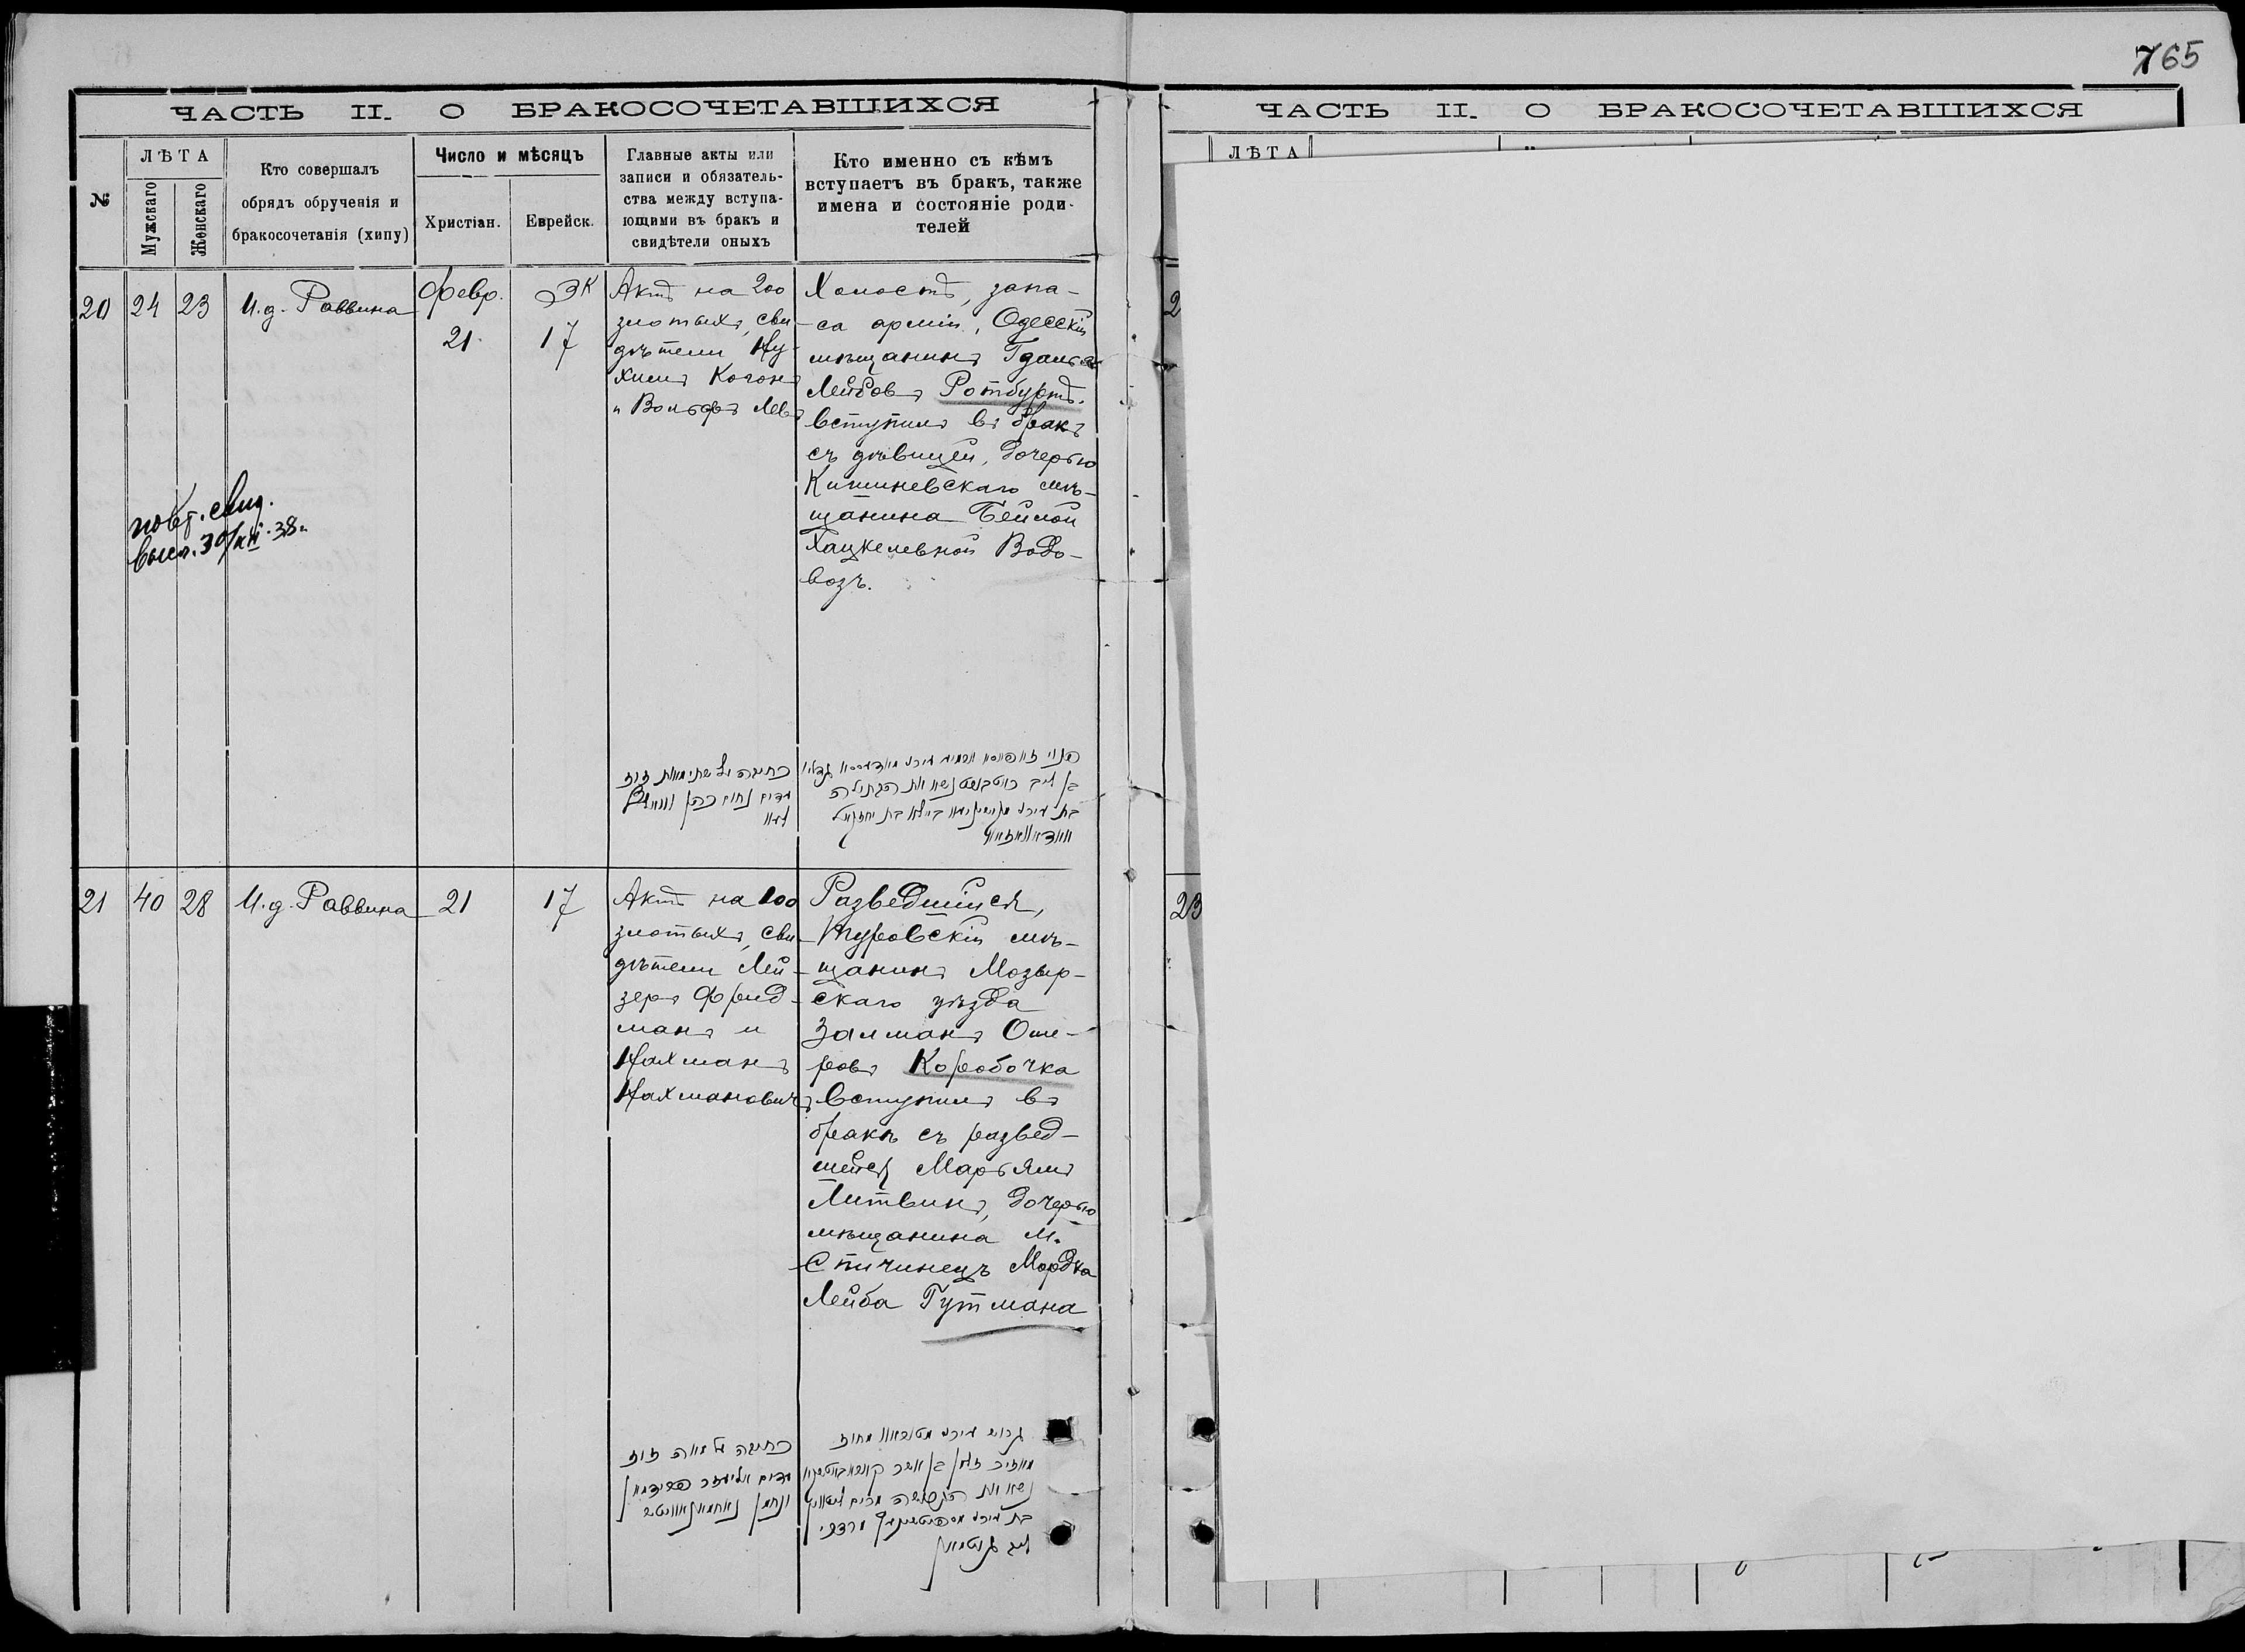 765
ЧАСТЬ II. О БРАКОСОЧЕТАВШИХСЯ
№
ЛѢТА
Мужскаго
Женскаго
Кто совершалъ
обрядъ обрученія и
бракосочетанія (хипу)
Число и мѣсяцъ
Христіан.
Еврейск.
Главные акты или
записи и обязатель-
ства между вступа-
ющими въ бракъ и
свидѣтели оныхъ
Кто именно съ кѣмъ
вступаетъ въ бракъ, также
имена и состояніе роди-
телей
20
24
23
И.д. Раввина
Февр.
21
17
Актъ на 200
злотыхъ, сви-
дѣтели Ну-
химъ Коганъ
и Вольфъ Левъ
Холостъ, запа-
са арміи, Одесскій
мѣщанинъ
Лейбовъ Ротбуртъ.
вступилъ въ бракъ
съ дѣвицей, дочерью
Кишиневскаго мѣ-
щанина Бейлой
Хацкелевной Водо-
возъ.
повт. свид.
выд. 30/XII.38.
כתובה על שתי מאות זוז
עדים נחום כהן
בת יחזקאל
21
40
28
И.д. Раввина
21
17
Актъ на 100
злотыхъ, сви-
дѣтели Лей-
зеръ Фрид-
манъ и
Нахманъ
Нахмановичъ
Разведшійся,
Туровскій мѣ-
щанинъ Мозыр-
скаго уѣзда
Залманъ Оше-
ровъ Коробочка
вступилъ въ
бракъ съ развед-
шейся Марьямъ
Литвинъ, дочерью
мѣщанина м.
Спичинецъ Мордка
Лейба Гутмана
כתובה על מאה זוז
עדים אליעזר פרידמאן
ונחמן נאחמאנאוויטש
ЧАСТЬ II. О БРАКОСОЧЕТАВШИХСЯ
ЛѢТА
2
23